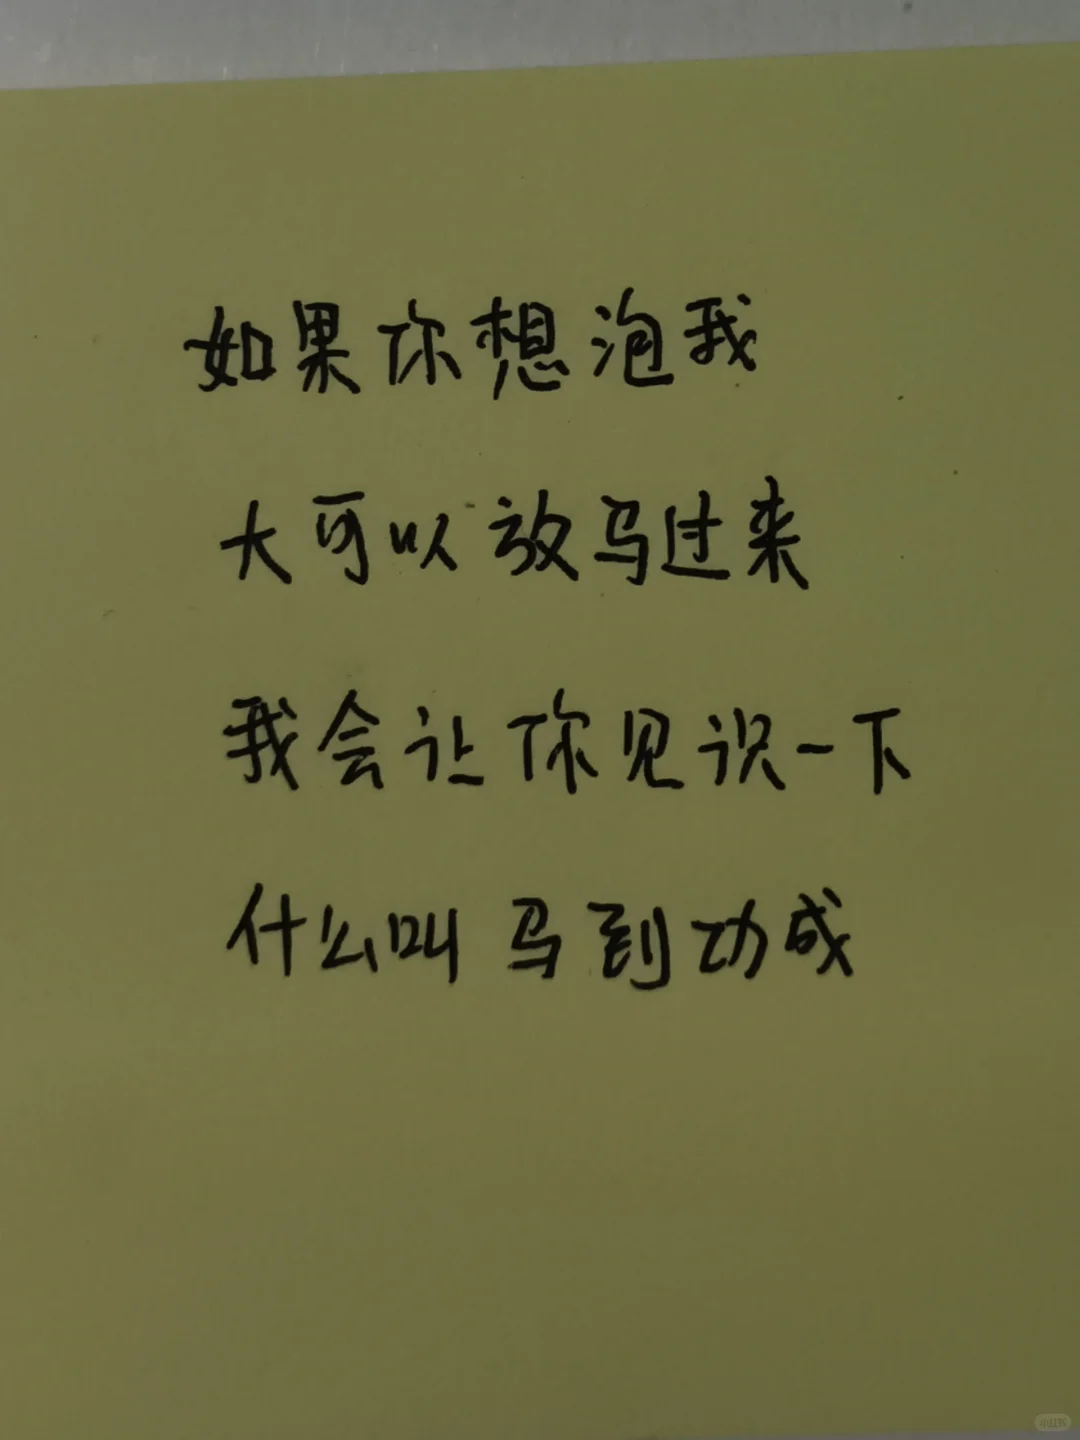 如果你想泡我
大可以放马过来
我会让你见识一下
什么叫马到功成
小红书